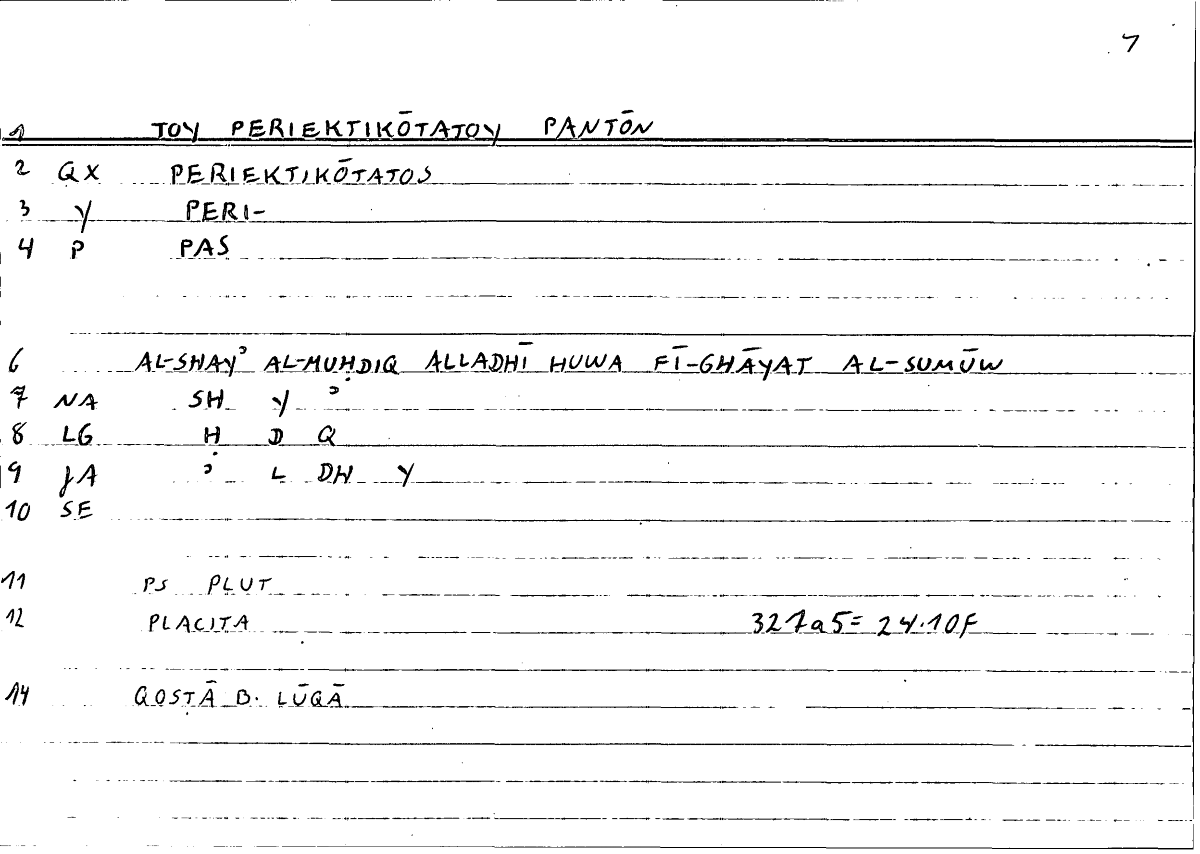 7
1 TOY PERIEKTIKŌTATOY PANTŌN
2 QX PERIEKTIKŌTATOS
3 Y PERI-
4 P PAS
6 AL-SHAYʾ AL-MUḤDIQ ALLADHĪ HUWA FĪ-GHĀYAT AL-SUMŪW
7 NA SH Y ʾ
8 LG Ḥ D Q
9 JA ʾ L DH Y
10 SE
11 PS PLUT
12 PLACITA 327a5= 24.10F
14 QOSṬĀ B. LŪQĀ